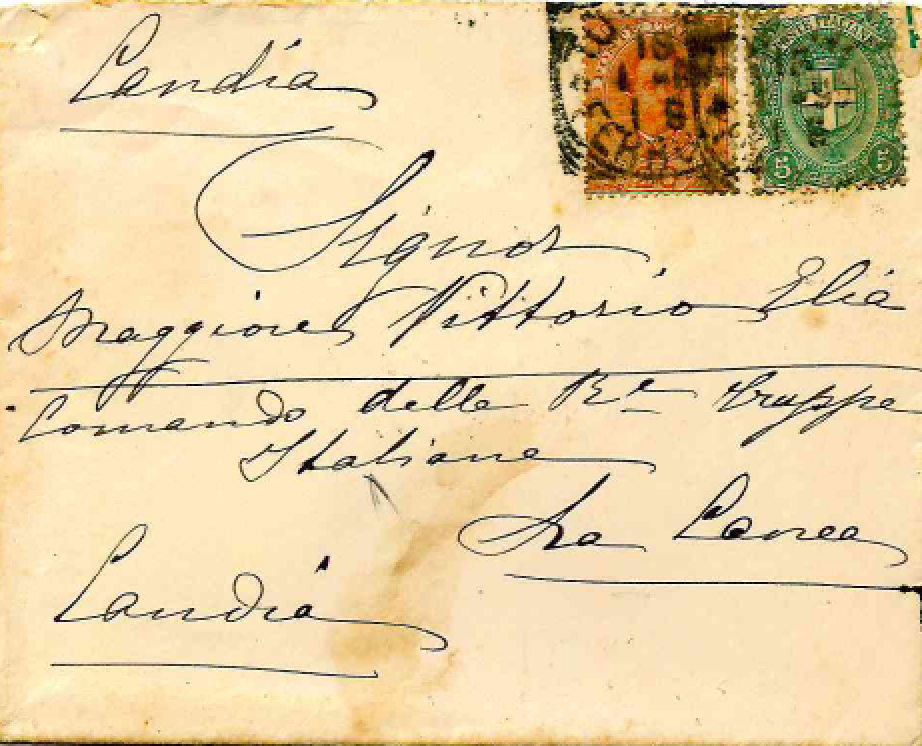 Candia
Signor
Maggiore Vittorio Elia
Comando delle Re Truppe
Italiane
La Canea
Candia
5 5